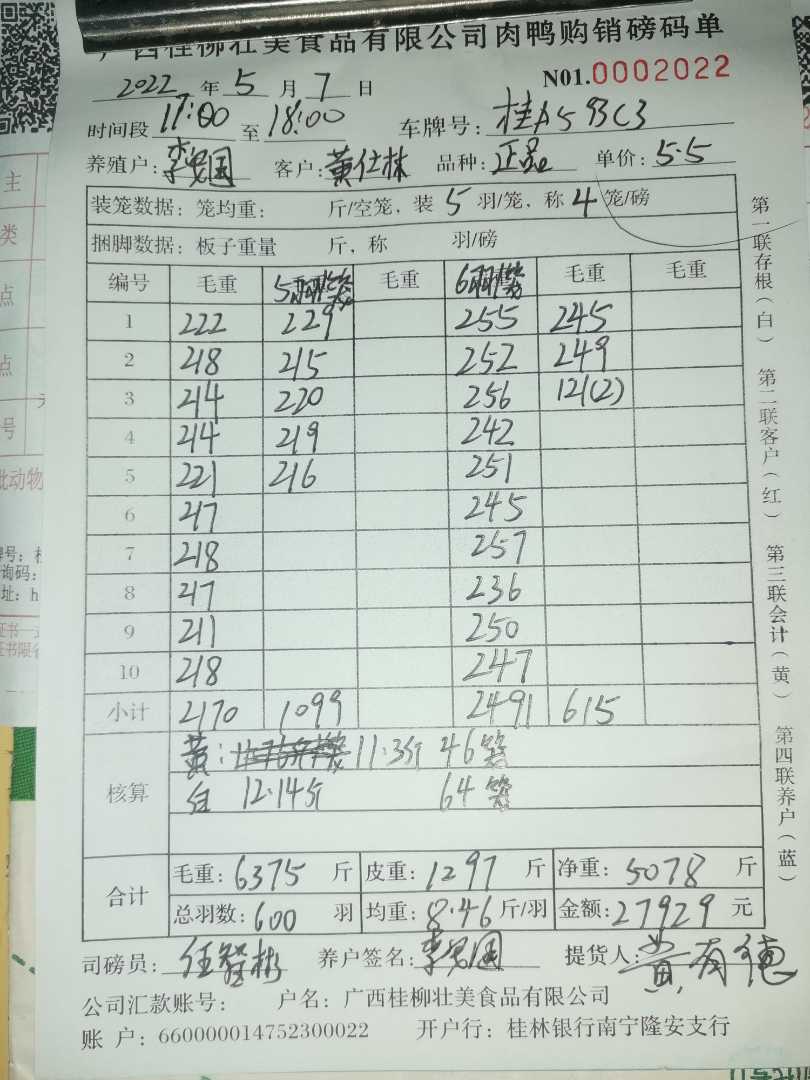 广西桂柳壮美食品有限公司肉鸭购销磅码单
2022 年 5 月 7 日 N01.0002022
时间段 17:00 至 18:00 车牌号: 桂A593C3
养殖户: 客户: 黄仕林 品种: 正品 单价: 5.5
装笼数据: 笼均重: 斤/空笼, 装 5 羽/笼, 称 4 笼/磅
捆脚数据: 板子重量 斤, 称 羽/磅
编号 毛重 5羽/笼 毛重 6羽/笼 毛重 毛重
1 222 229 255 245
2 218 215 252 249
3 214 220 256 121(2)
4 214 219 242
5 221 216 251
6 217 245
7 218 257
8 217 236
9 211 250
10 218 247
小计 2170 1099 2491 615
核算 黄: 11.3斤 46笼
12.14斤 64笼
合计 毛重: 6375 斤 皮重: 1297 斤 净重: 5078 斤
总羽数: 600 羽 均重: 8.46 斤/羽 金额: 27929 元
司磅员: 养户签名: 提货人: 黄有德
公司汇款账号: 户名: 广西桂柳壮美食品有限公司
账 户: 660000014752300022 开户行: 桂林银行南宁隆安支行
第一联存根(白) 第二联客户(红) 第三联会计(黄) 第四联养户(蓝)
主
类
点
点
号
批动物